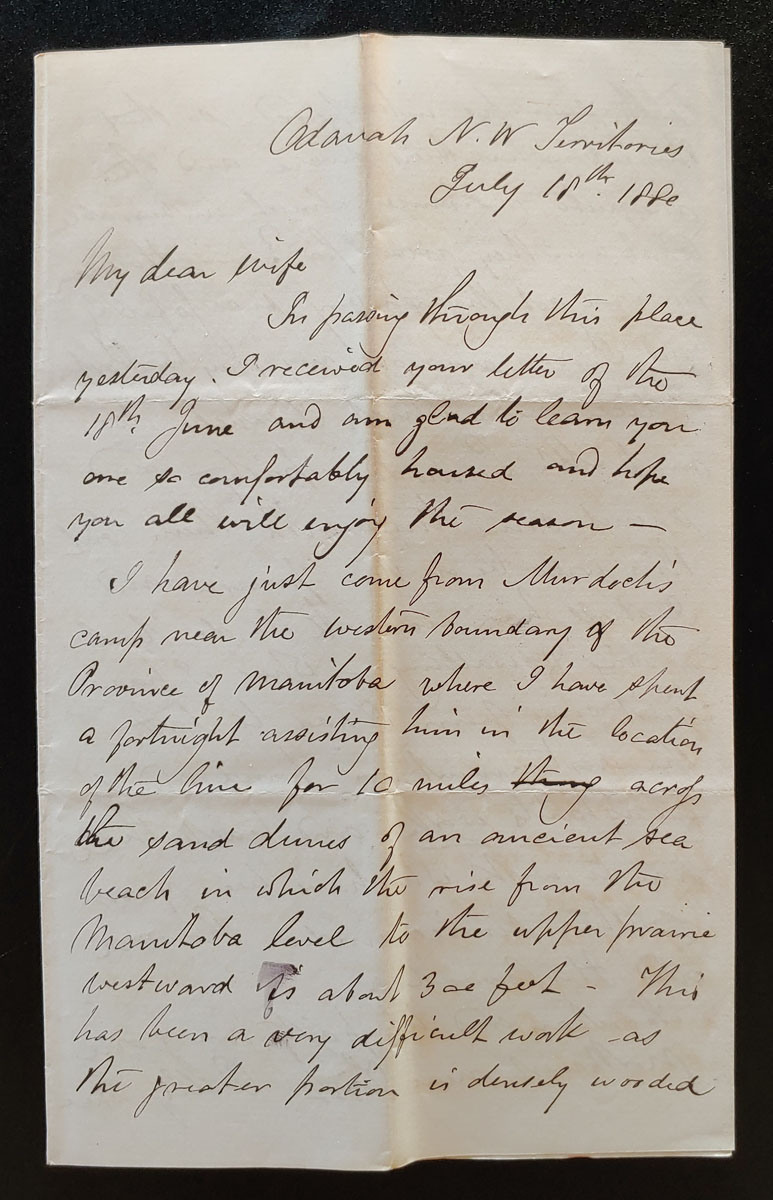 Odanah N.W Territories
July 18th. 1880
My dear wife
In passing through this place
yesterday. I received your letter of the
18th. June and am glad to learn you
are so comfortably housed and hope
you all will enjoy the season —
I have just come from Murdoch's
camp near the western boundary of the
Province of Manitoba where I have spent
a fortnight assisting him in the location
of the line for 10 miles across
the sand dunes of an ancient sea
beach in which the rise from the
Manitoba level to the upper prairie
westward is about 300 feet - This
has been a very difficult work - as
the greater portion is densely wooded